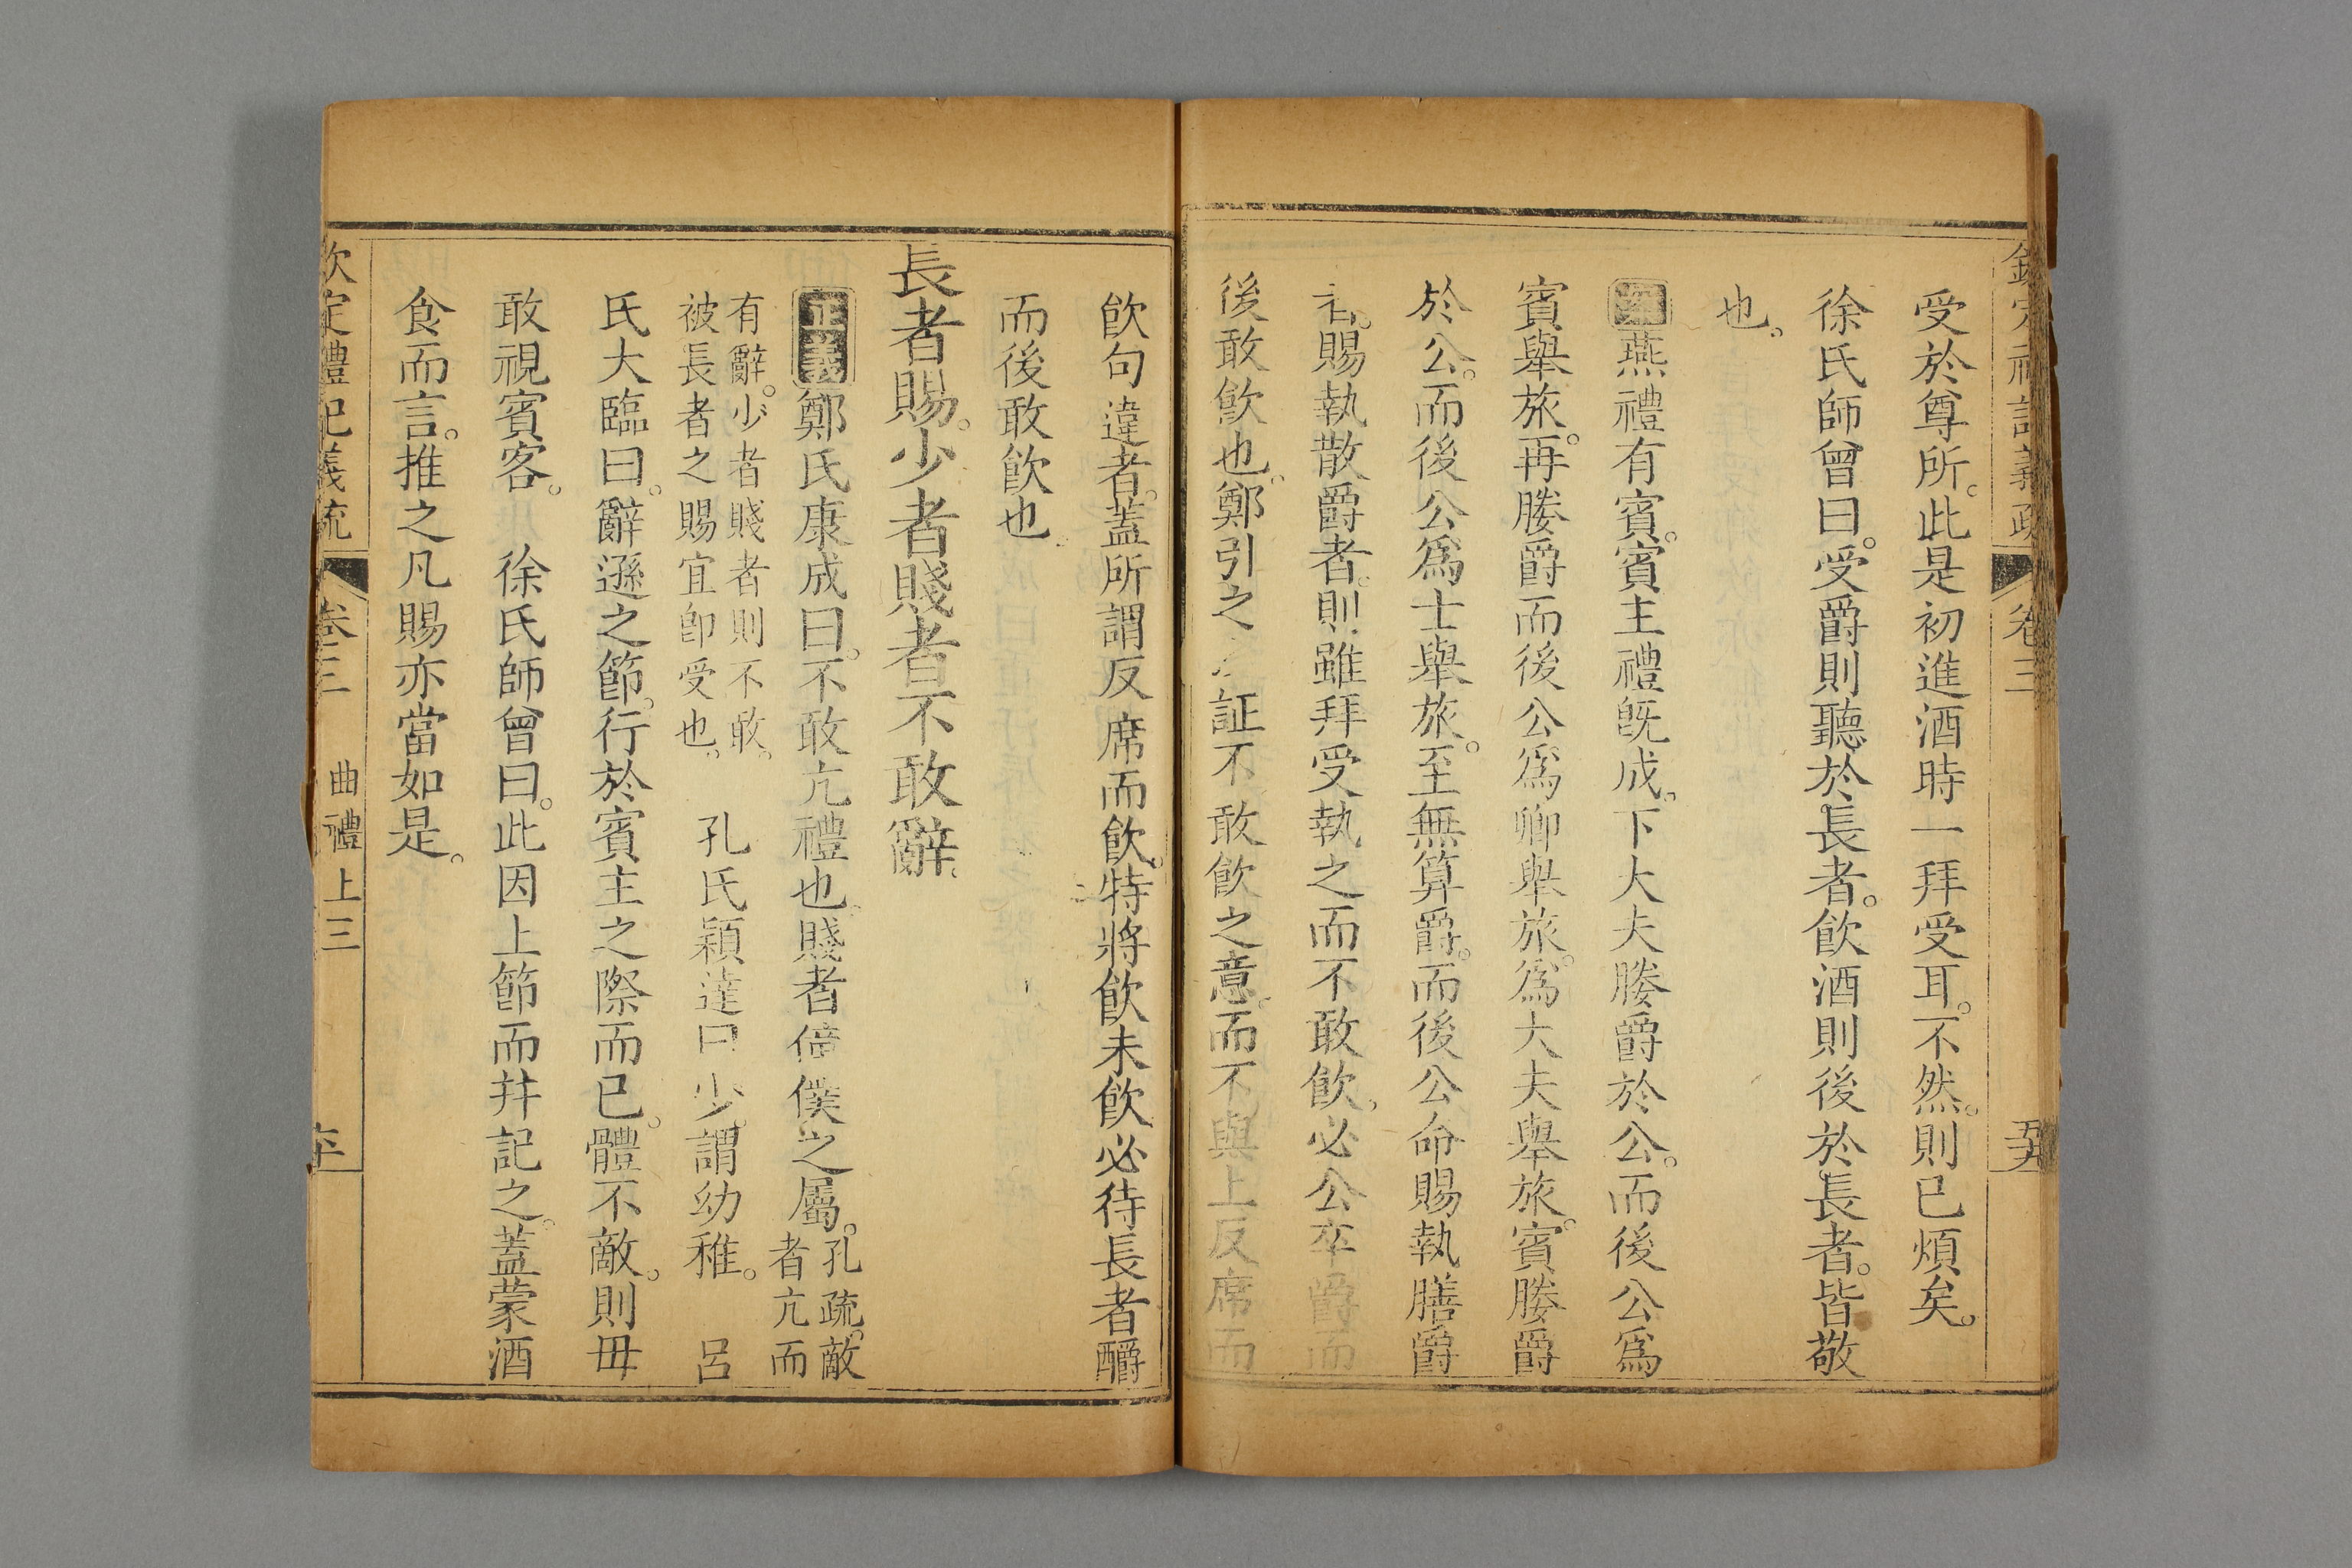 欽定禮記義疏 卷三 五九
受於尊所。此是初進酒時一拜受耳。不然。則已煩矣。
徐氏師曾曰。受爵則聽於長者。飲酒則後於長者。皆敬
也。
燕禮有賓。賓主禮旣成。下大夫媵爵於公。而後公爲
賓舉旅。再媵爵而後公爲卿舉旅。爲大夫舉旅。賓媵爵
於公。而後公爲士舉旅。至無算爵。而後公命賜執膳爵
者。賜執散爵者。則雖拜受執之而不敢飲。必公卒爵而
後敢飲也。鄭引之 証不敢飲之意。而不與上反席而
飲句違者。蓋所謂反席而飲。特將飲未飲必待長者釂
而後敢飲也
長者賜。少者賤者不敢辭。
正義鄭氏康成曰。不敢亢禮也。賤者僮僕之屬。孔疏。敵
者亢而
有辭。少者賤者則不敢。
被長者之賜宜卽受也。 孔氏穎達曰少。謂幼稚。 呂
氏大臨曰。辭遜之節。行於賓主之際而已。體不敵。則毋
敢視賓客。 徐氏師曾曰。此因上節而幷記之。蓋蒙酒
食而言。推之凡賜亦當如是。
欽定禮記義疏 卷三 曲禮上三 卒